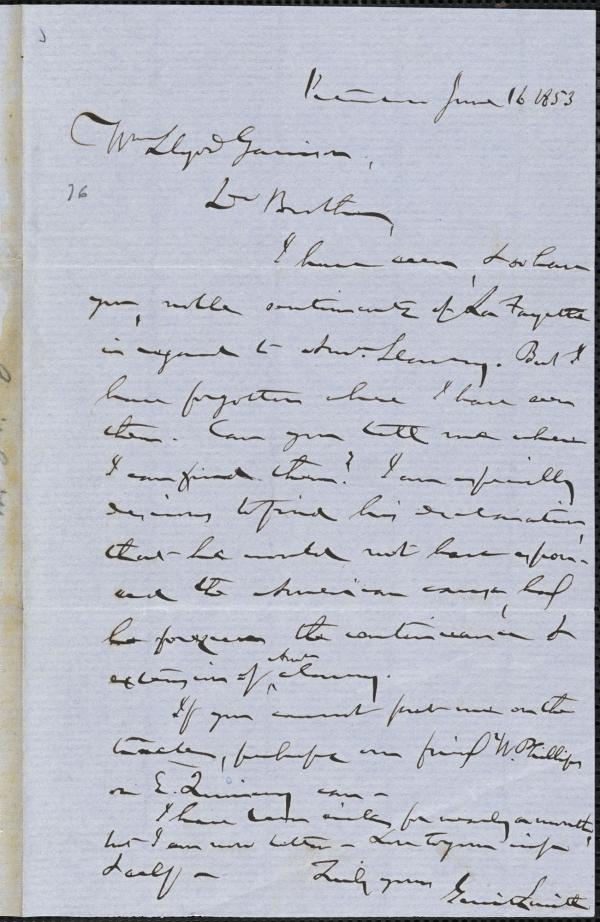 Peterboro June 16 1853
Wm Lloyd Garrison,
76
Dr Brother,
I have seen, & so have
you, noble sentiments of La Fayette
in regard to Amn. Slavery. But I
have forgotten where I have seen
them. Can you tell me where
I can find them? I am especially
desirous to find his declaration,
that he would not have espou-
sed the American cause, had
he foreseen the continuance &
extension of Amn slavery.
If you cannot put me on the
track, perhaps our friend W. Phillips
or E. Quincy can -
I have been sick for nearly a month,
but I am now better - Love to your wife
& self -
Truly yours
Gerrit Smith